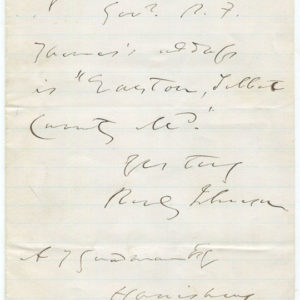 Gov. P. F.
Thomas's address
is "Easton, Talbot
County Md."
Yrs truly
Reverdy Johnson
A
Harrisburg